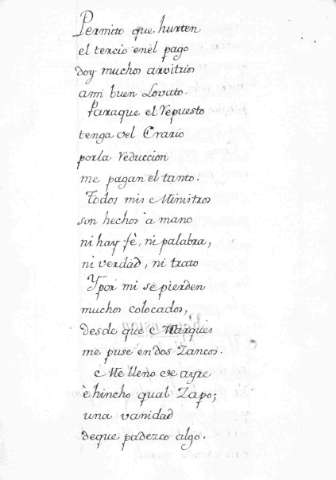 Permito que hurten
el tercio enel pago
doy muchos arvitrios
ami buen Lovato.
Paraque el repuesto
tenga del Erario
porla reduccion
me pagan el tanto.
Todos mis Ministros
son hechos a mano
ni hay fè, ni palabra,
ni verdad, ni trato
Ypor mi se pierden
muchos colocados,
desde que Marques
me puse endos Zancos.
Me lleno de ayre
è hincho qual Zapo;
una vanidad
deque padezco algo.